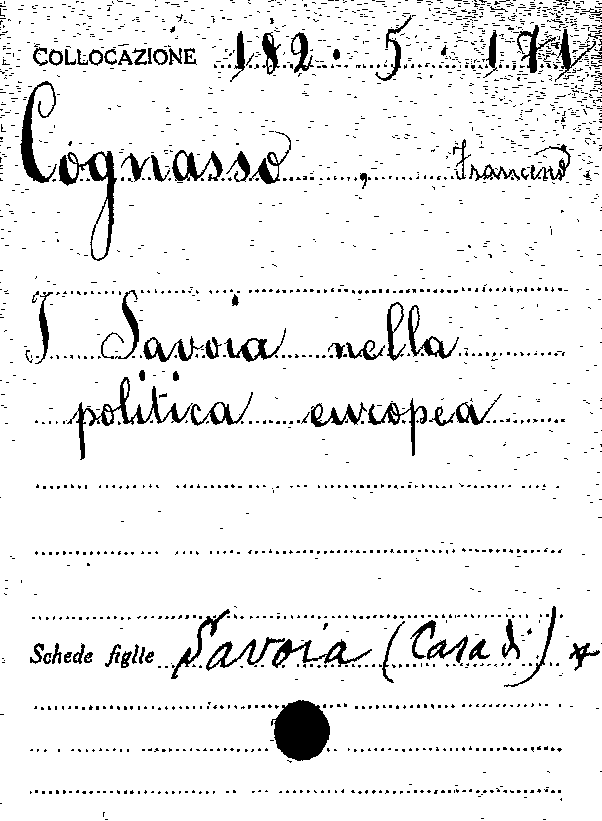 COLLOCAZIONE 182.5.171
Cognasso, Francesco.
I Savoia nella
politica europea
Schede figlie Savoia (Casa di) *